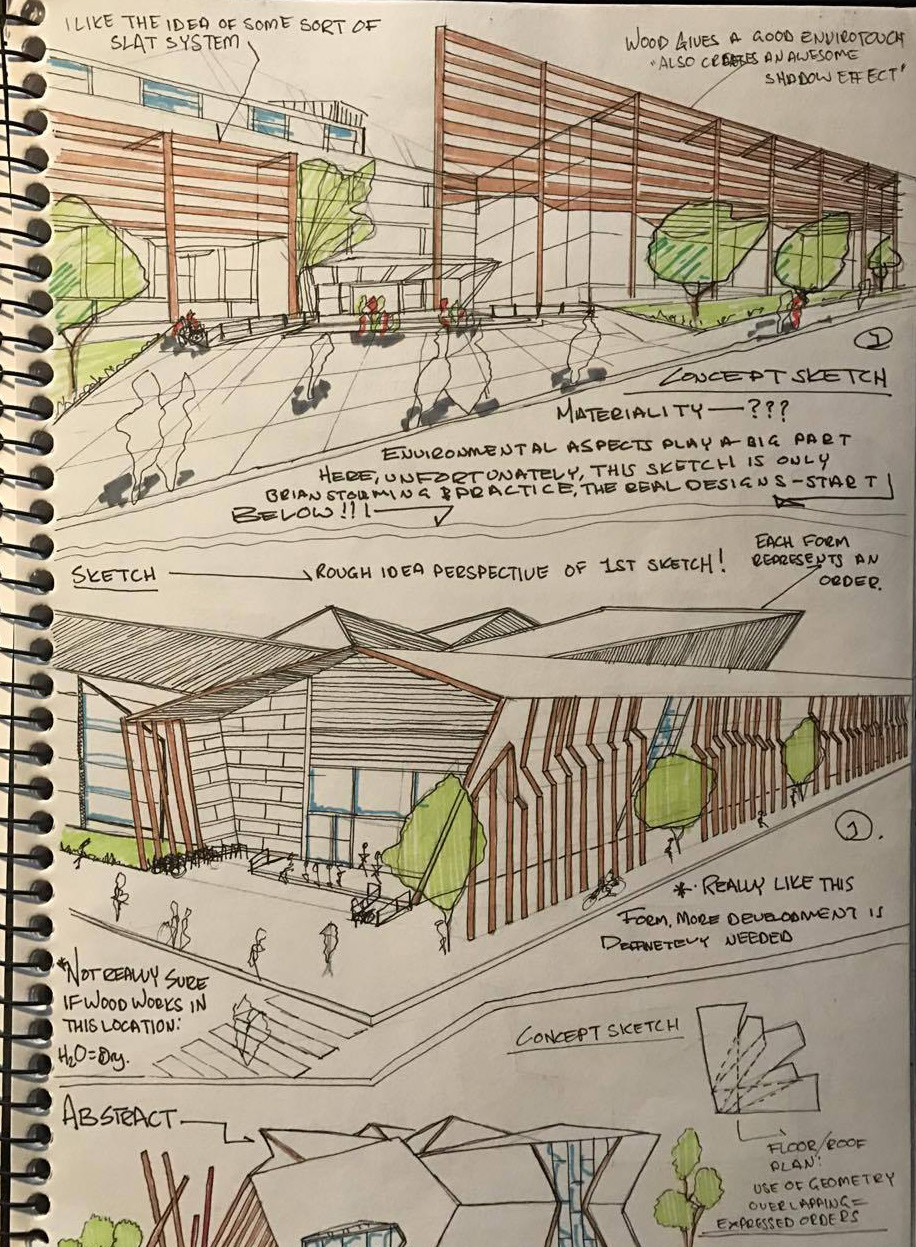 I LIKE THE IDEA OF SOME SORT OF
SLAT SYSTEM
WOOD GIVES A GOOD ENVIROTOUCH
"ALSO CREATES AN AWESOME
SHADOW EFFECT"
CONCEPT SKETCH
MATERIALITY — ???
ENVIRONMENTAL ASPECTS PLAY A BIG PART
HERE, UNFORTUNATELY, THIS SKETCH IS ONLY
BRIANSTORMING & PRACTICE, THE REAL DESIGNS - START
BELOW!!!
SKETCH
ROUGH IDEA PERSPECTIVE OF 1ST SKETCH!
EACH FORM
REPRESENTS AN
ORDER.
1.
* REALLY LIKE THIS
FORM, MORE DEVELOPMENT IS
DEFINETELY NEEDED
*NOT REALLY SURE
IF WOOD WORKS IN
THIS LOCATION:
H2O = Dry.
CONCEPT SKETCH
ABSTRACT
FLOOR/ROOF
PLAN:
USE OF GEOMETRY
OVERLAPPING =
EXPRESSED ORDERS